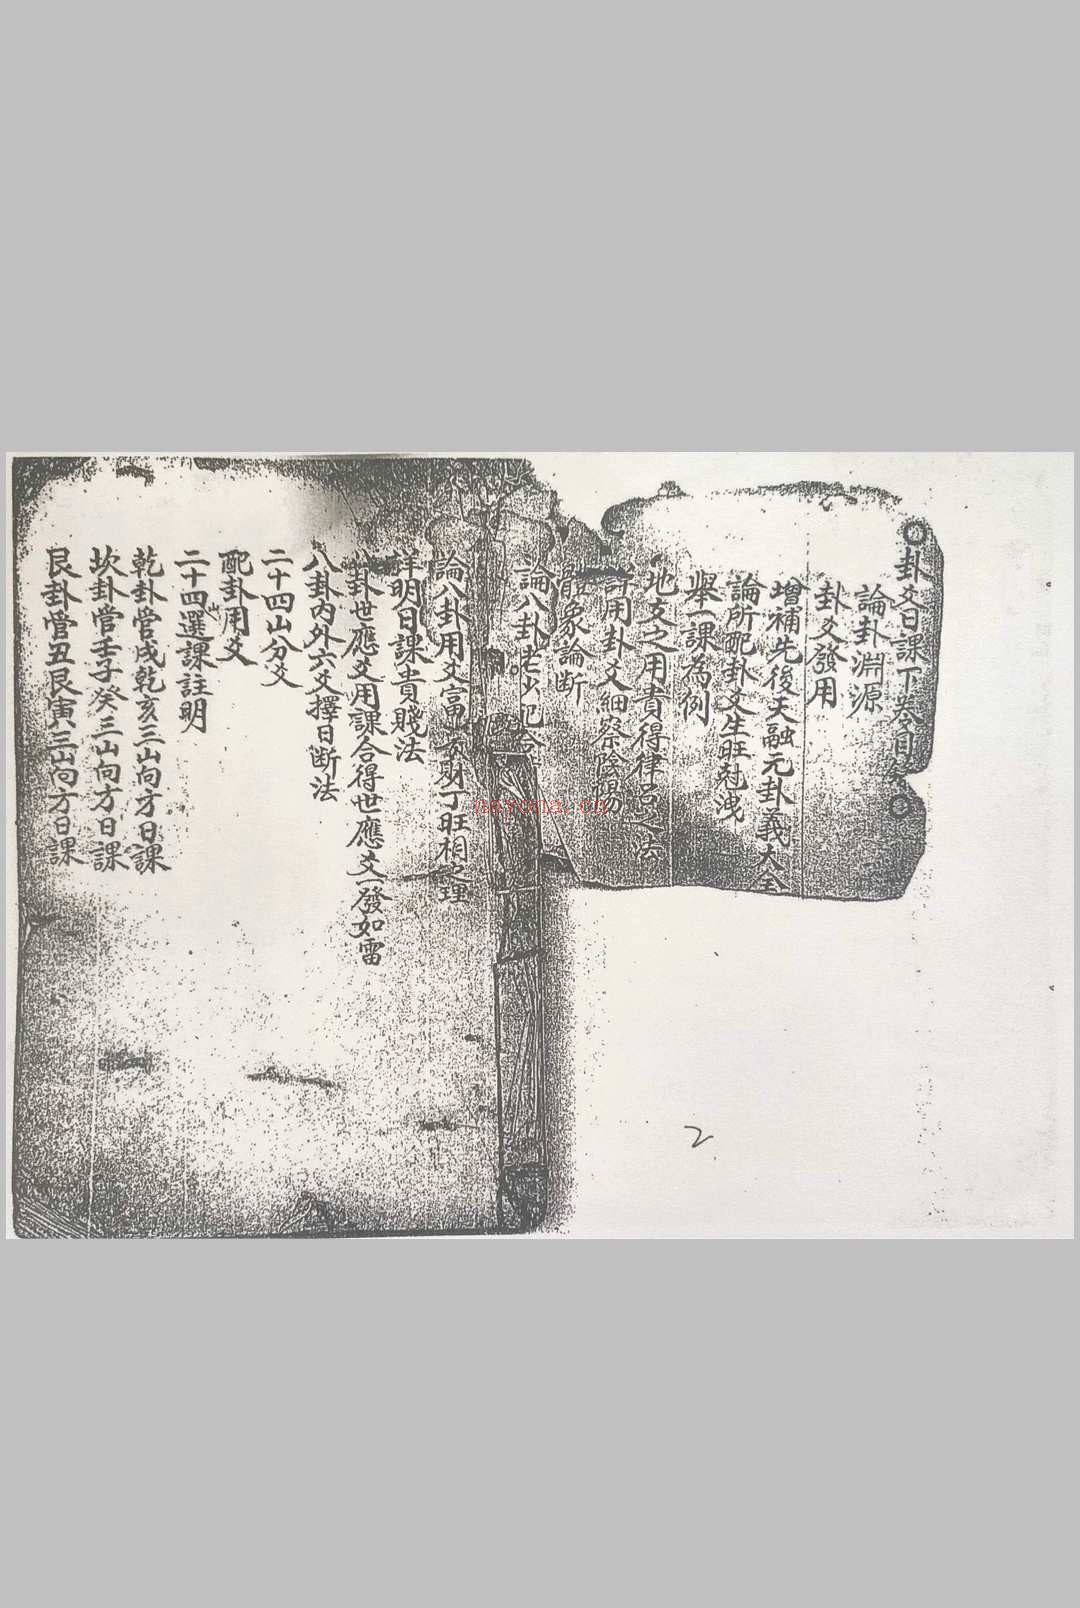 卦爻日課下卷目錄
論卦淵源
卦爻發用
增補先後天融元卦義大全
論所配卦爻生旺尅洩
舉一課為例
地支之用貴得律呂之法
用卦爻細察陰陽
體象論断
論八卦老少配合
論八卦用爻富 財丁旺相之理
詳明日課貴賤法
卦世應爻用課合得世應爻一發如雷
八卦內外六爻擇日断法
二十四山分爻
配卦用爻
二十四山選課註明
乾卦管戌乾亥三山向方日課
坎卦管壬子癸三山向方日課
艮卦管丑艮寅三山向方日課
nayona.cn
2